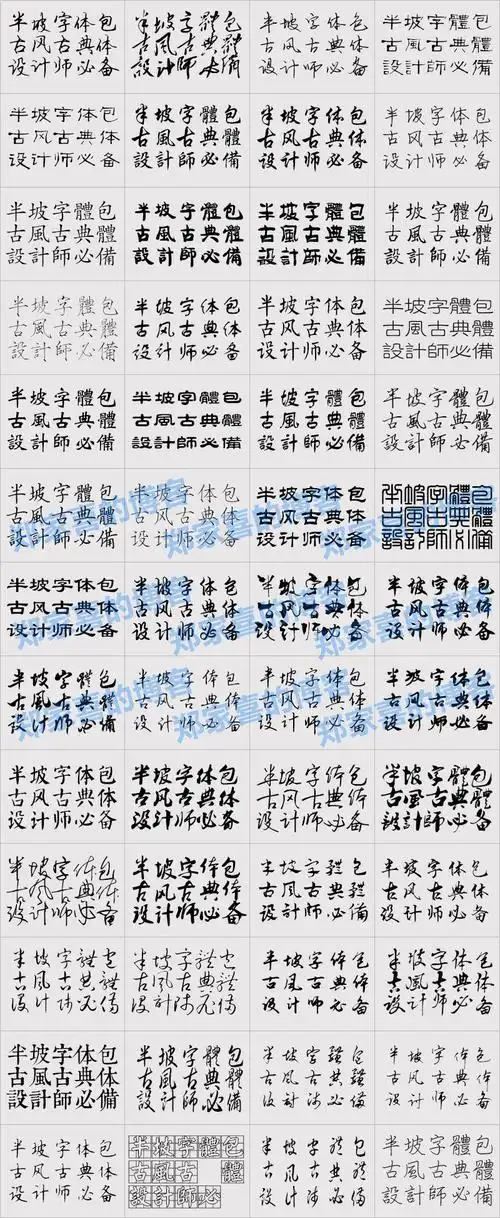 半坡字体包
古风古典体
设计师必备
半坡字體包
古風古典體
設計師必備
半坡字体包
古风古典体
设计师必备
半坡字體包
古風古典體
設計師必備
半坡字体包
古风古典体
设计师必备
半坡字體包
古風古典體
設計師必備
半坡字体包
古风古典体
设计师必备
半坡字体包
古风古典体
设计师必备
半坡字體包
古風古典體
設計師必備
半坡字體包
古風古典體
設計師必備
半坡字體包
古風古典體
設計師必備
半坡字體包
古風古典體
設計師必備
半坡字體包
古風古典體
設計師必備
半坡字体包
古风古典体
设计师必备
半坡字体包
古风古典体
设计师必备
半坡字體包
古風古典體
設計師必備
半坡字體包
古風古典體
設計師必備
半坡字體包
古風古典體
設計師必備
半坡字體包
古風古典體
設計師必備
半坡字體包
古風古典體
設計師必備
半坡字體包
古風古典體
設計師必備
半坡字体包
古风古典体
设计师必备
半坡字体包
古风古典体
设计师必备
半坡字體包
古風古典體
設計師必備
郑家喜的博客
郑家喜的博客
半坡字体包
古风古典体
设计师必备
半坡字体包
古风古典体
设计师必备
半坡字体包
古风古典体
设计师必备
半坡字体包
古风古典体
设计师必备
郑家喜的博客
郑家喜的博客
半坡字體包
古風古典體
设计师必備
半坡字体包
古风古典体
设计师必备
半坡字体包
古风古典体
设计师必备
半坡字体包
古风古典体
设计师必备
郑家喜的博客
郑家喜的博客
半坡字体包
古风古典体
设计师必备
半坡字体包
古风古典体
设计师必备
半坡字体包
古风古典体
设计师必备
半坡字體包
古風古典體
設計師必備
半坡字体包
古风古典体
设计师必备
半坡字体包
古风古典体
设计师必备
半坡字體包
古風古典體
设计师必備
半坡字体包
古风古典体
设计师必备
半坡字體包
古風古典體
设计师必備
半坡字體包
古風古典體
设计师必備
半坡字体包
古风古典体
设计师必备
半坡字体包
古風古典体
设计师必备
半坡字体包
古風古典体
設計師必備
半坡字體包
古風古典體
設計師必備
半坡字體包
古風古典體
设计师必備
半坡字体包
古风古典体
设计师必备
半坡字体包
古风古典体
设计师必备
半坡字體包
古風古 體
設計師必
半坡字體包
古風古典體
设计师必備
半坡字體包
古風古典體
設計師必備